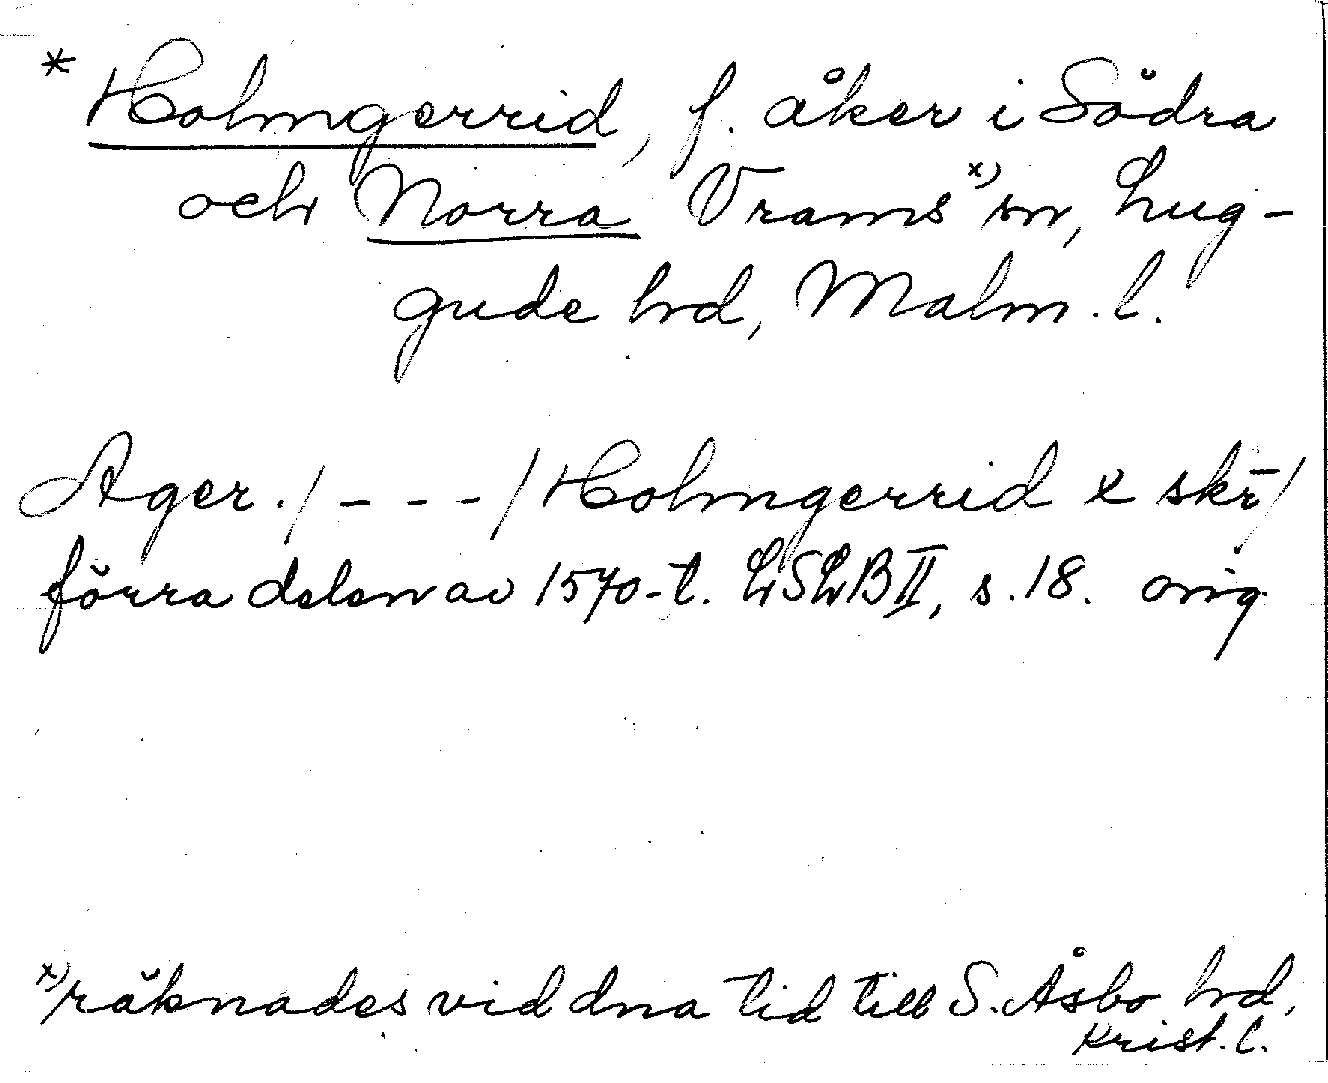 * Holmgerrid, f. åker i Södra
och Norra Vrams x) sn, Lug-
gude hd, Malm. l.
Ager ./ - - - / Holmgerrid x skr̄ /
förra delen av 1570-t. LSLB II, s. 18. orig
x) räknades vid dna tid till S. Åsbo hd,
Krist. l.